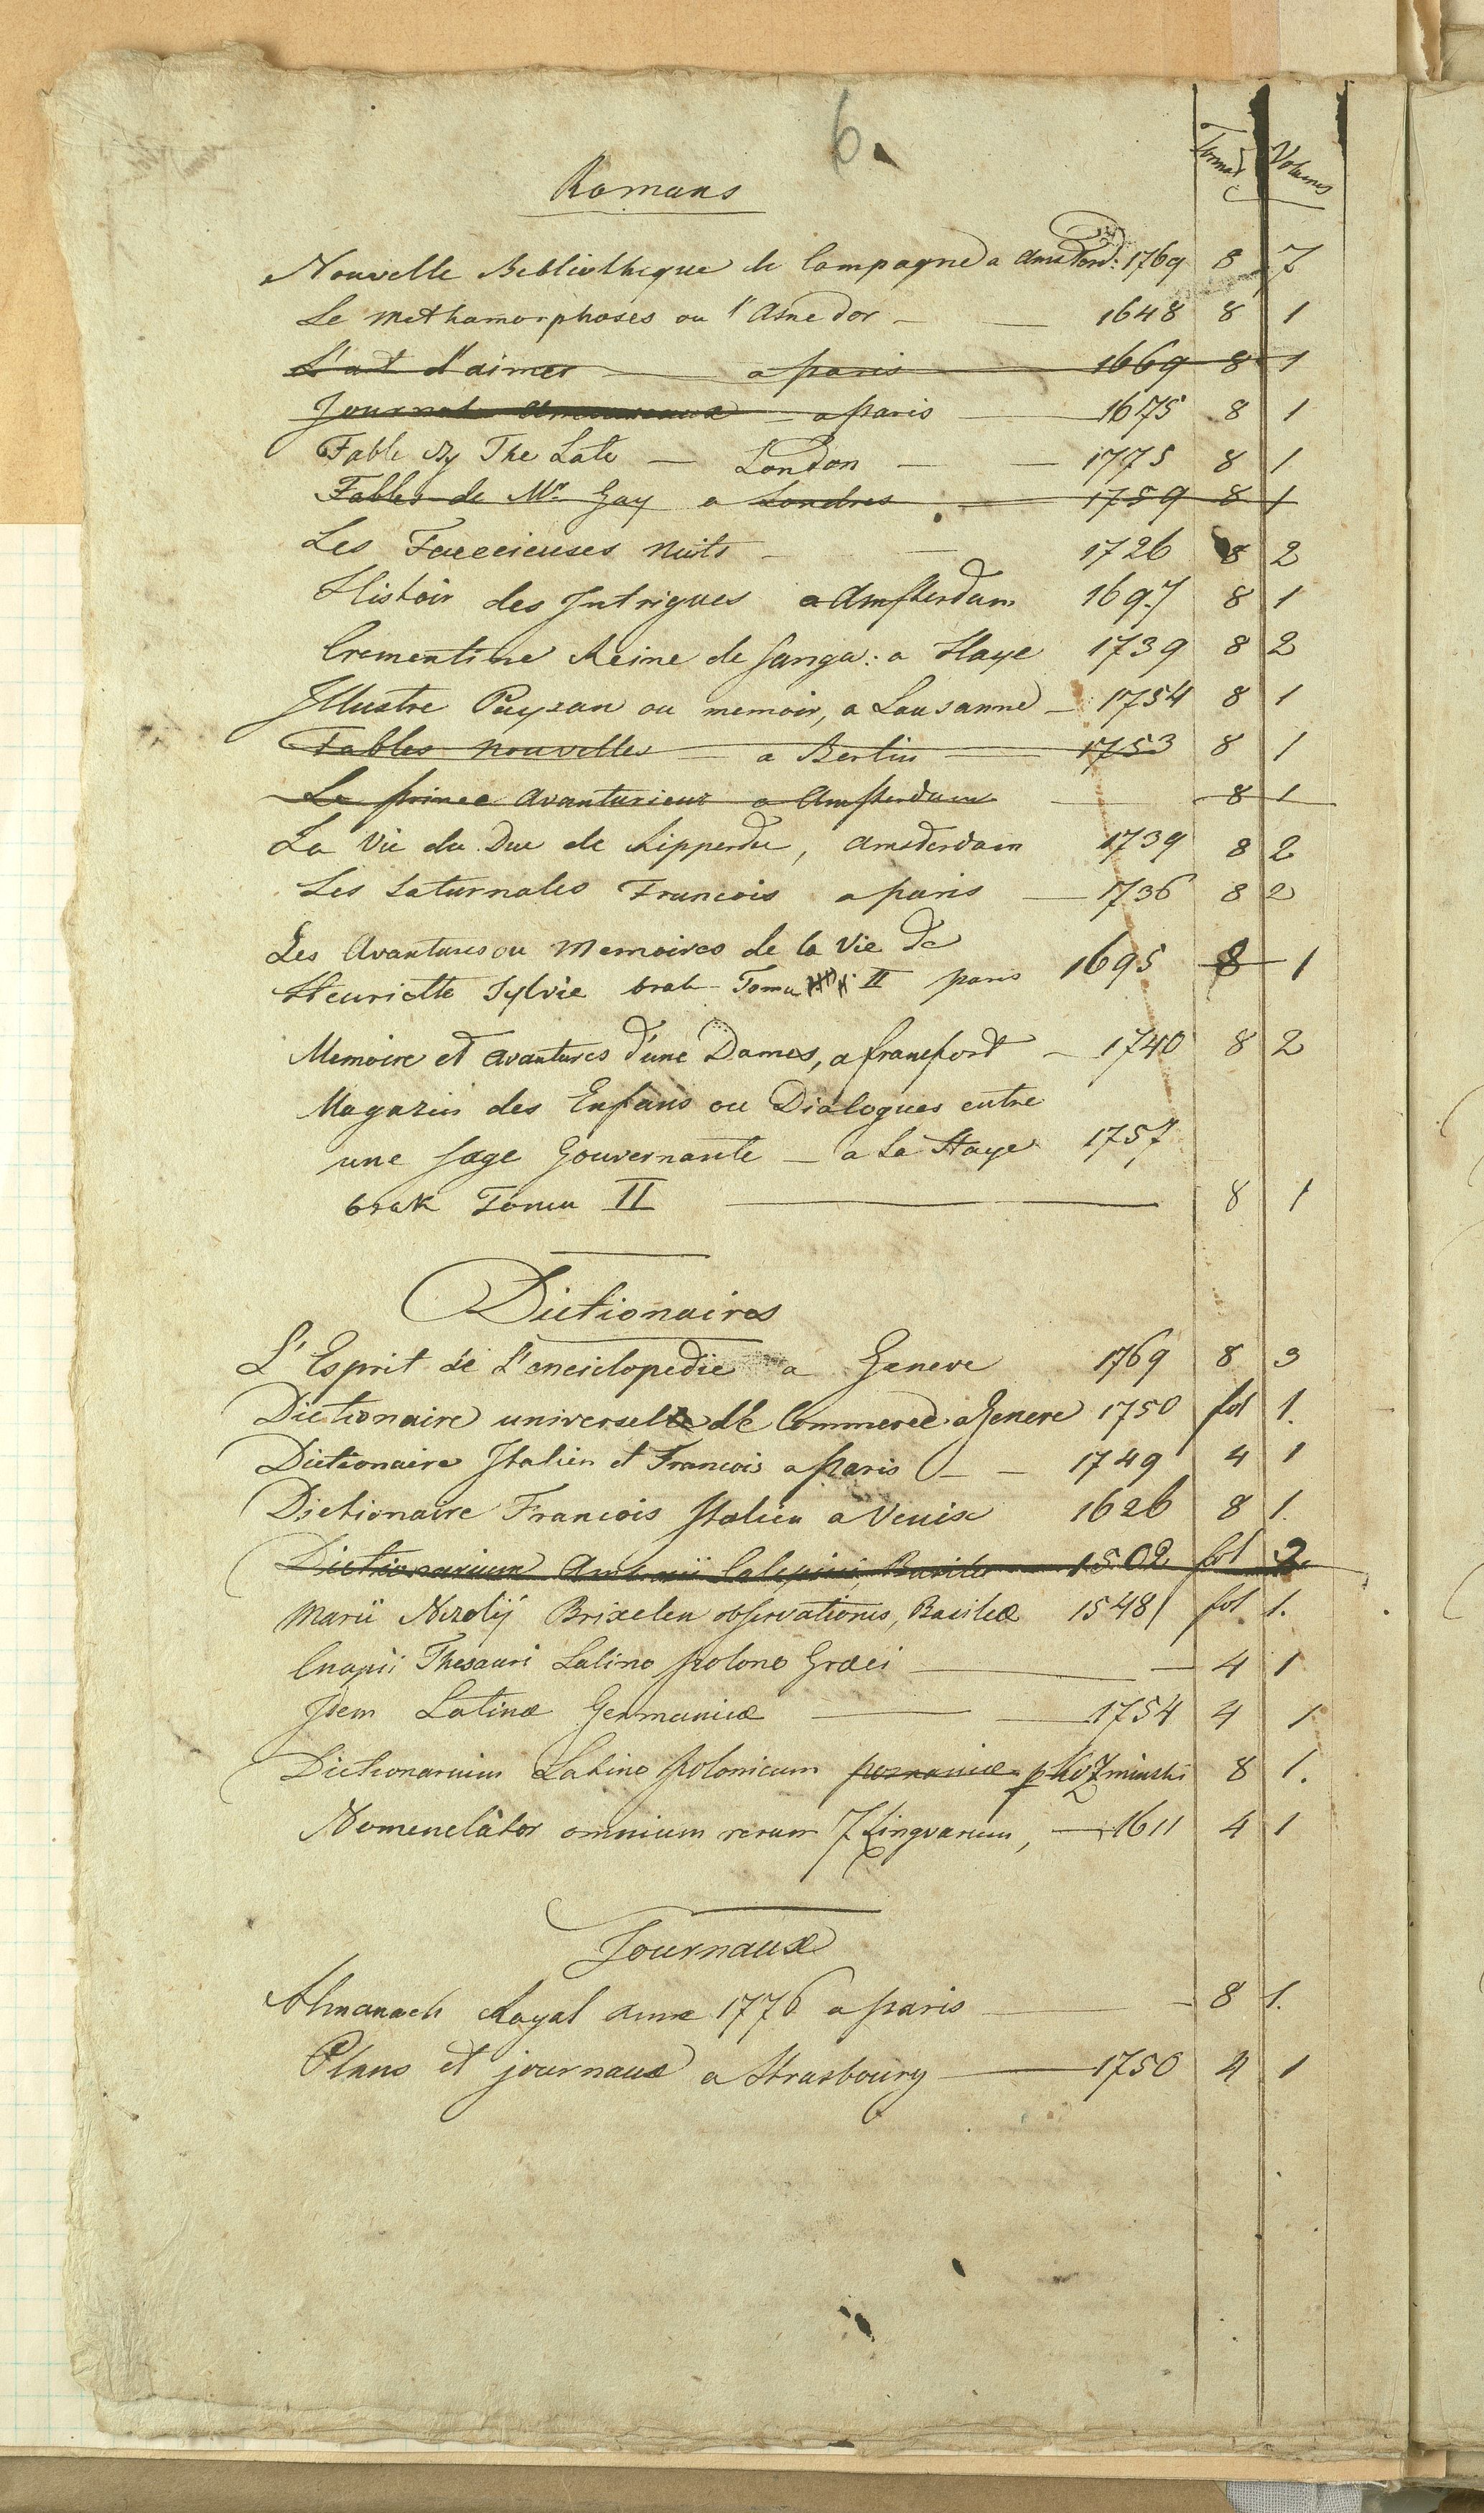 6.
Format Volumes
Romans
Nouvelle Bibliotheque de Campagne a Amsterd: 1769 8 7
Le methamorphoses ou l'Asne dor — — 1648 8 1
L'art d'aimer — a paris — 1669 8 1
Journal Amoureaux — a paris — 1675 8 1
Fable By The Late — London — — 1775 8 1
Fables de Mr Gay a Londres — 1759 8 1
Les Faccieuses nuits — — 1726 8 2
Histoir des Intrigues a Amsterdam 1697 8 1
Crementine Reine de Sanga: a Haye 1739 8 2
Illustre Paysan ou memoir, a Lausanne — 1754 8 1
Fables nouvelles — a Berlin — 1753 8 1
Le prince avanturieur a Amsterdam — 8 1
La Vie du Duc de Ripperda, amsderdam 1739 8 2
Les Saturnales Francois a paris — 1736 8 2
Les Avantures ou Memoires de la Vie de
Henriette Sylvie brak Tomu II paris 1695 8 1
Memoire et avantures d'une Dames, a francfort — 1740 8 2
Magazin des Enfans ou Dialogues entre
une sage Gouvernante — a La Haye 1757
brak Tomu II — 8 1
Dictionaires
L'Esprit de L'enciclopedie a Geneve 1769 8 3
Dictionaire universel de Commerce a Geneve 1750 fol 1.
Dictionaire Italien et Francois a Paris — — 1749 4 1
Dictionaire Francois Italien a Venise 1626 8 1.
Dictionarium Calepini, Basileæ 1502 fol 2.
Marii Nizolij Brixelen observationes, Basileæ 1548 fol 1.
Cnapii Thesauri Latino polono Græci — — 4 1
Idem Latinæ Germanicæ — — 1754 4 1
Dictionarium Latino polonicum posnaniæ p Kozminski 8 1.
Nomenclâtor omnium rerum 7 Lingvarum, — 1611 4 1
Journaux
Almanach Royal anné 1776 a paris — — 8 1.
Plans et journaux a Strasbourg — 1750 4 1